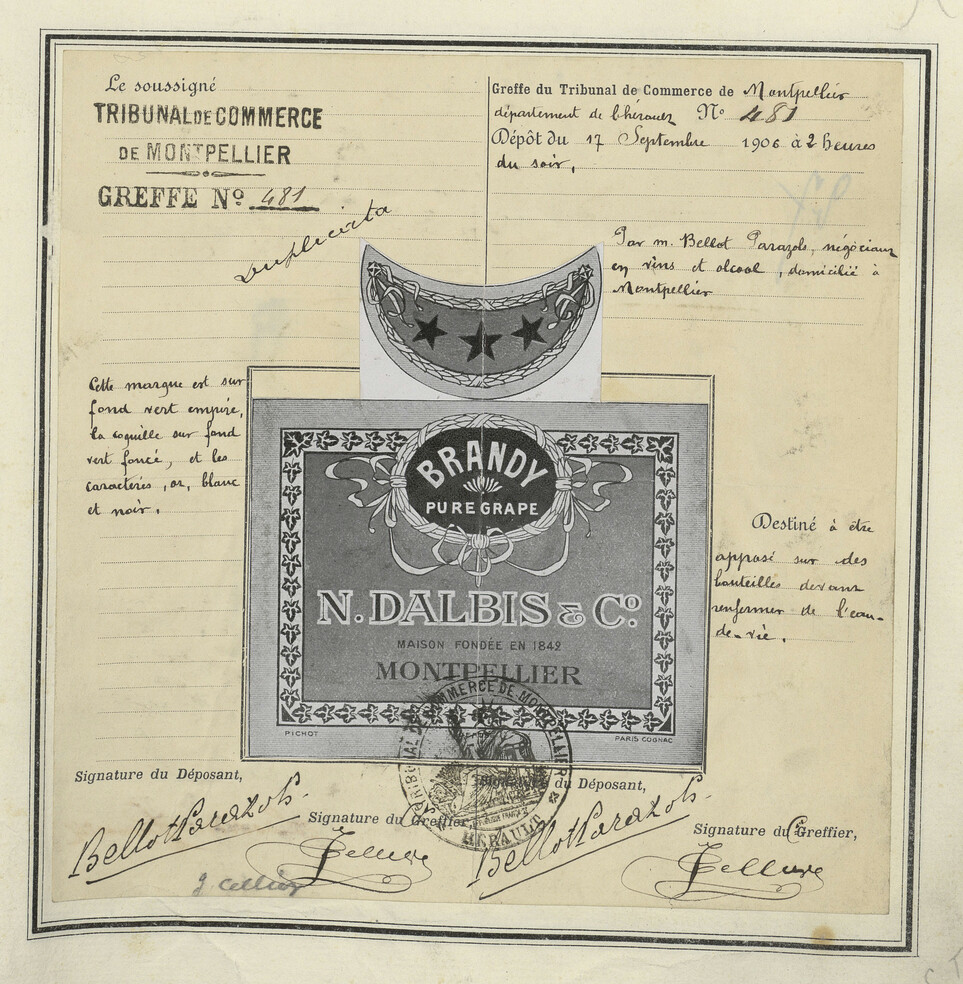 Le soussigné
TRIBUNAL DE COMMERCE
DE MONTPELLIER
GREFFE Nº 481
Duplicata
Greffe du Tribunal de Commerce de Montpellier
département de l'hérault Nº 481
Dépôt du 17 Septembre 1906 à 2 heures
du soir,
Par m. Bellot Parazols, négociant
en vins et alcool, domicilié à
Montpellier
Cette marque est sur
fond vert empire,
la coquille sur fond
vert foncé, et les
caractères, or, blanc
et noir.
BRANDY
PURE GRAPE
N. DALBIS & Cº.
MAISON FONDÉE EN 1842
MONTPELLIER
PICHOT
PARIS COGNAC
Destiné à être
apposé sur des
bouteilles devant
renfermer de l'eau-
de-vie.
TRIBUNAL DE COMMERCE DE MONTPELLIER
RÉPUBLIQUE FRANÇAISE
HÉRAULT
Signature du Déposant,
Bellot Parazols
Signature du Greffier,
J. Cellier
du Déposant,
Bellot Parazols
Signature du Greffier,